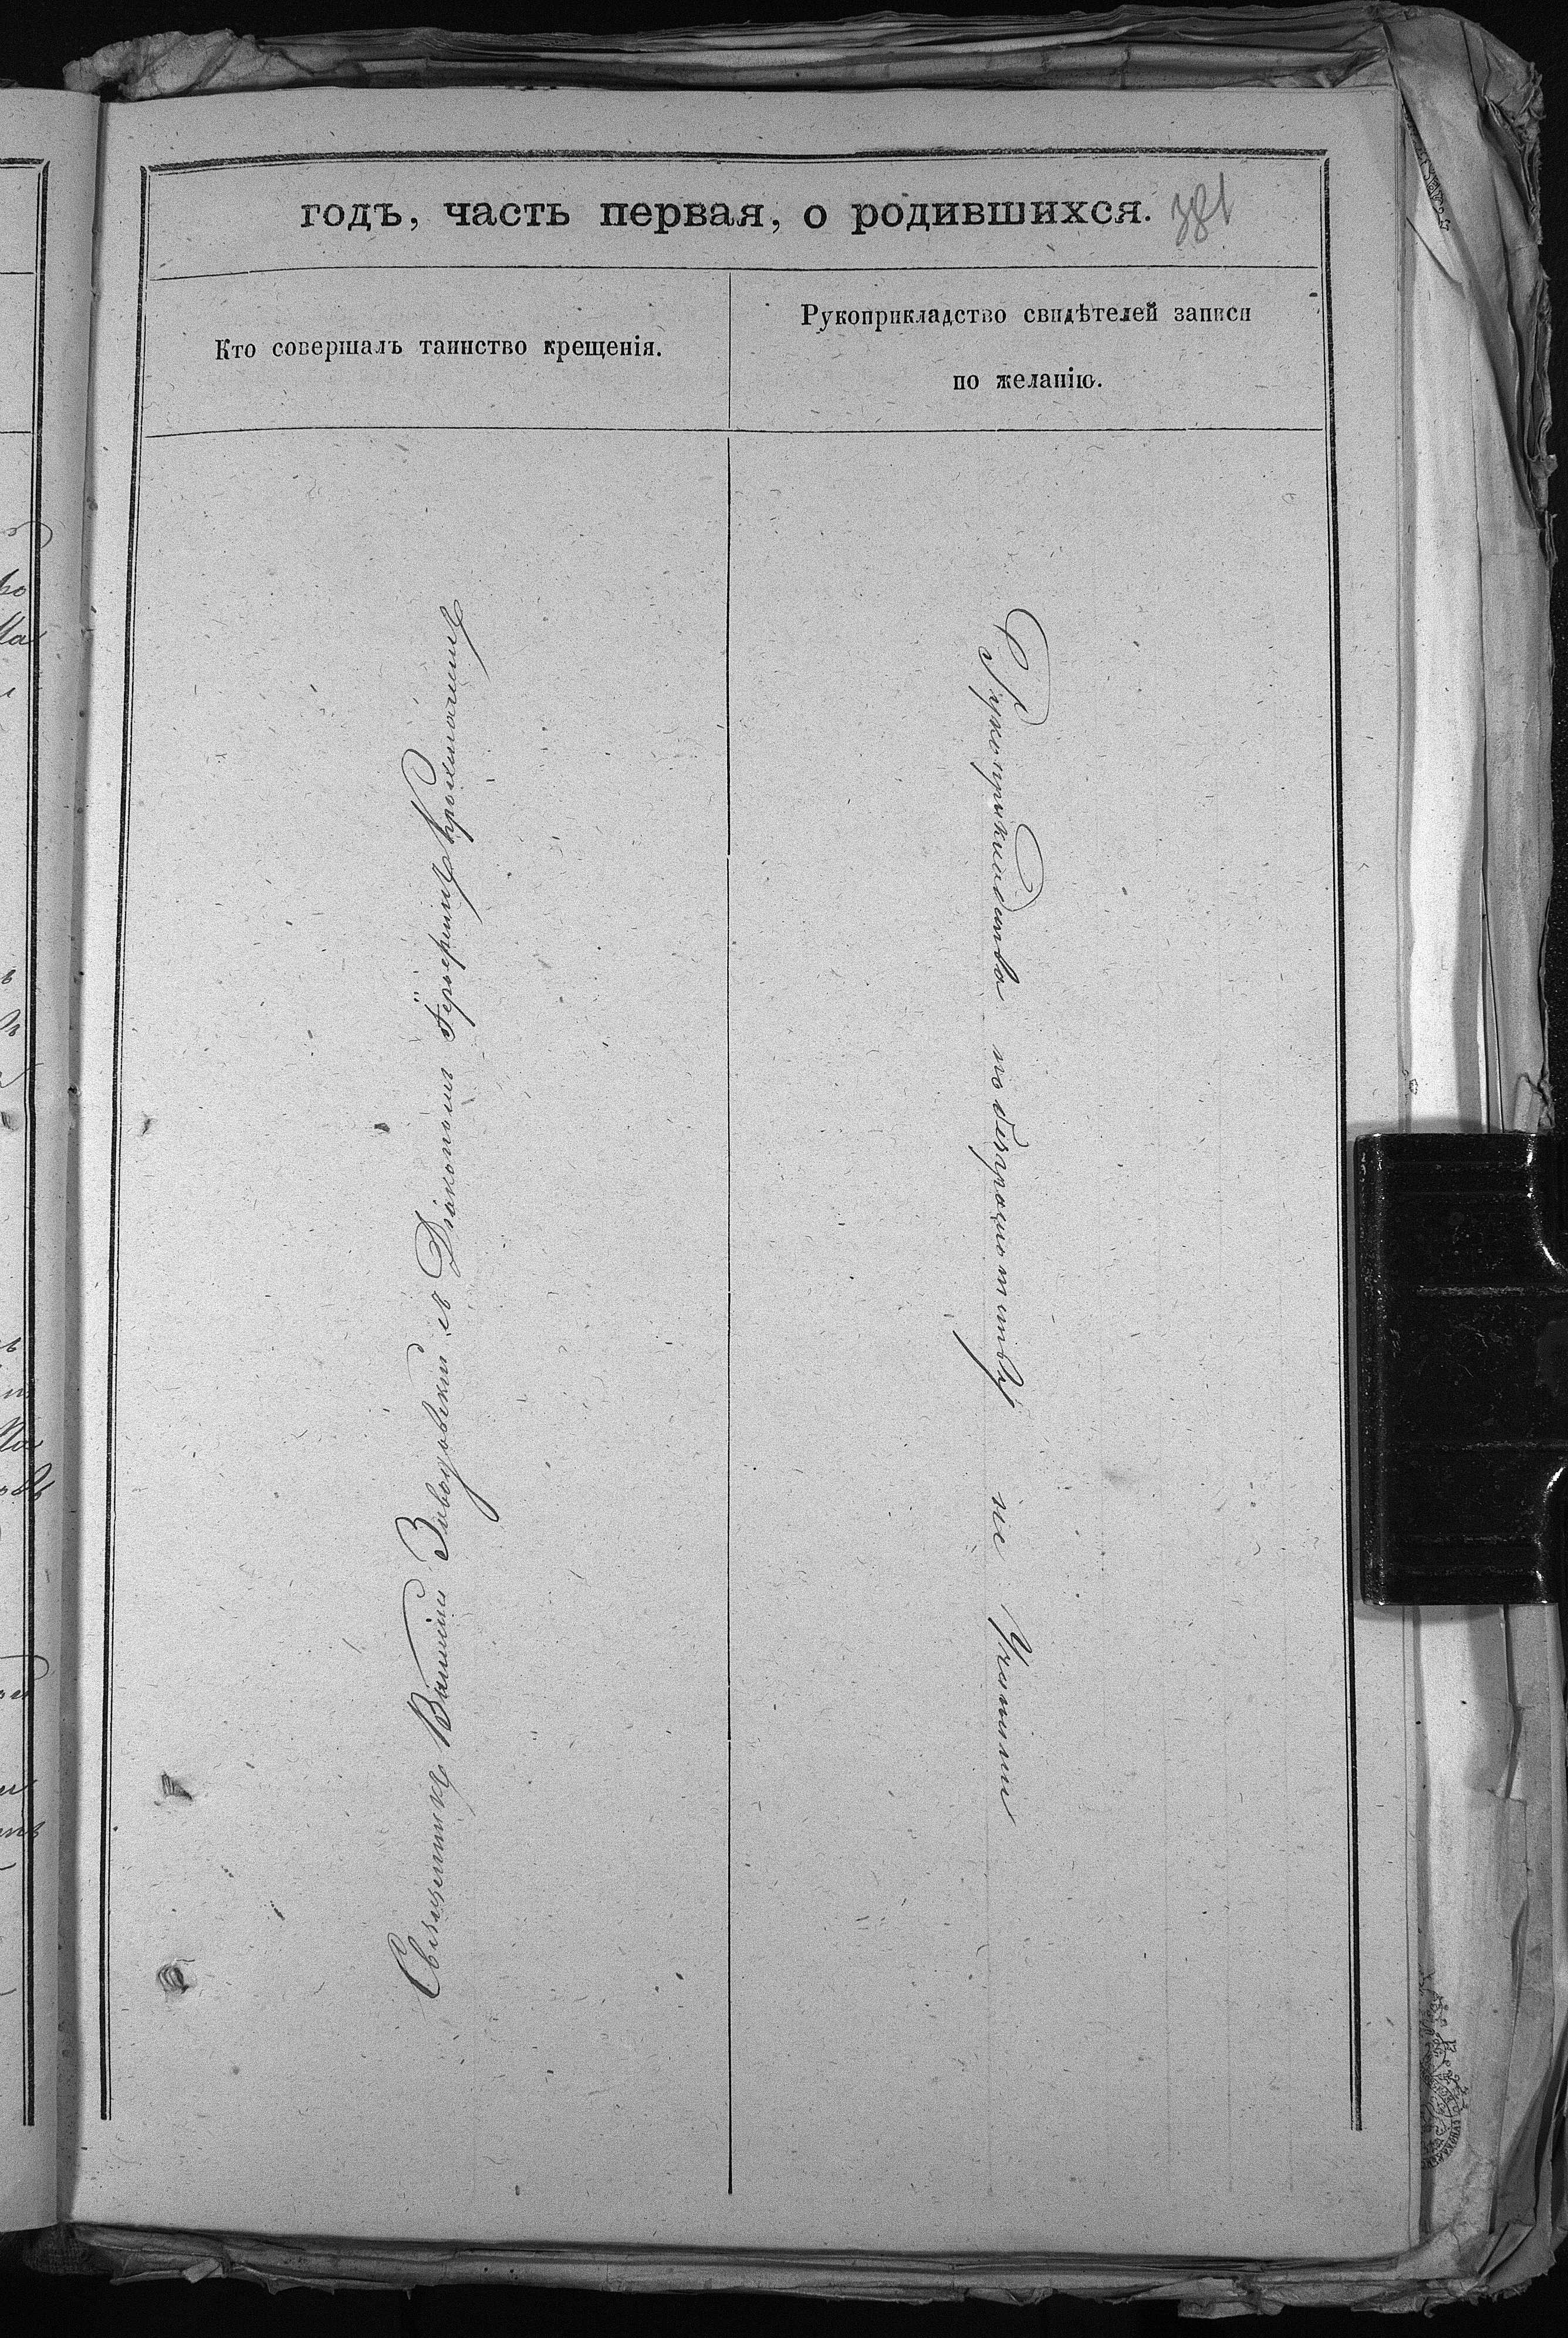 годъ, часть первая, о родившихся. 381
Кто совершалъ таинство крещенія.
Рукоприкладство свидѣтелей записи
по желанію.
Священникъ Заводовскій съ Діакономъ
Рукоприкладства по безграмотству не учинили